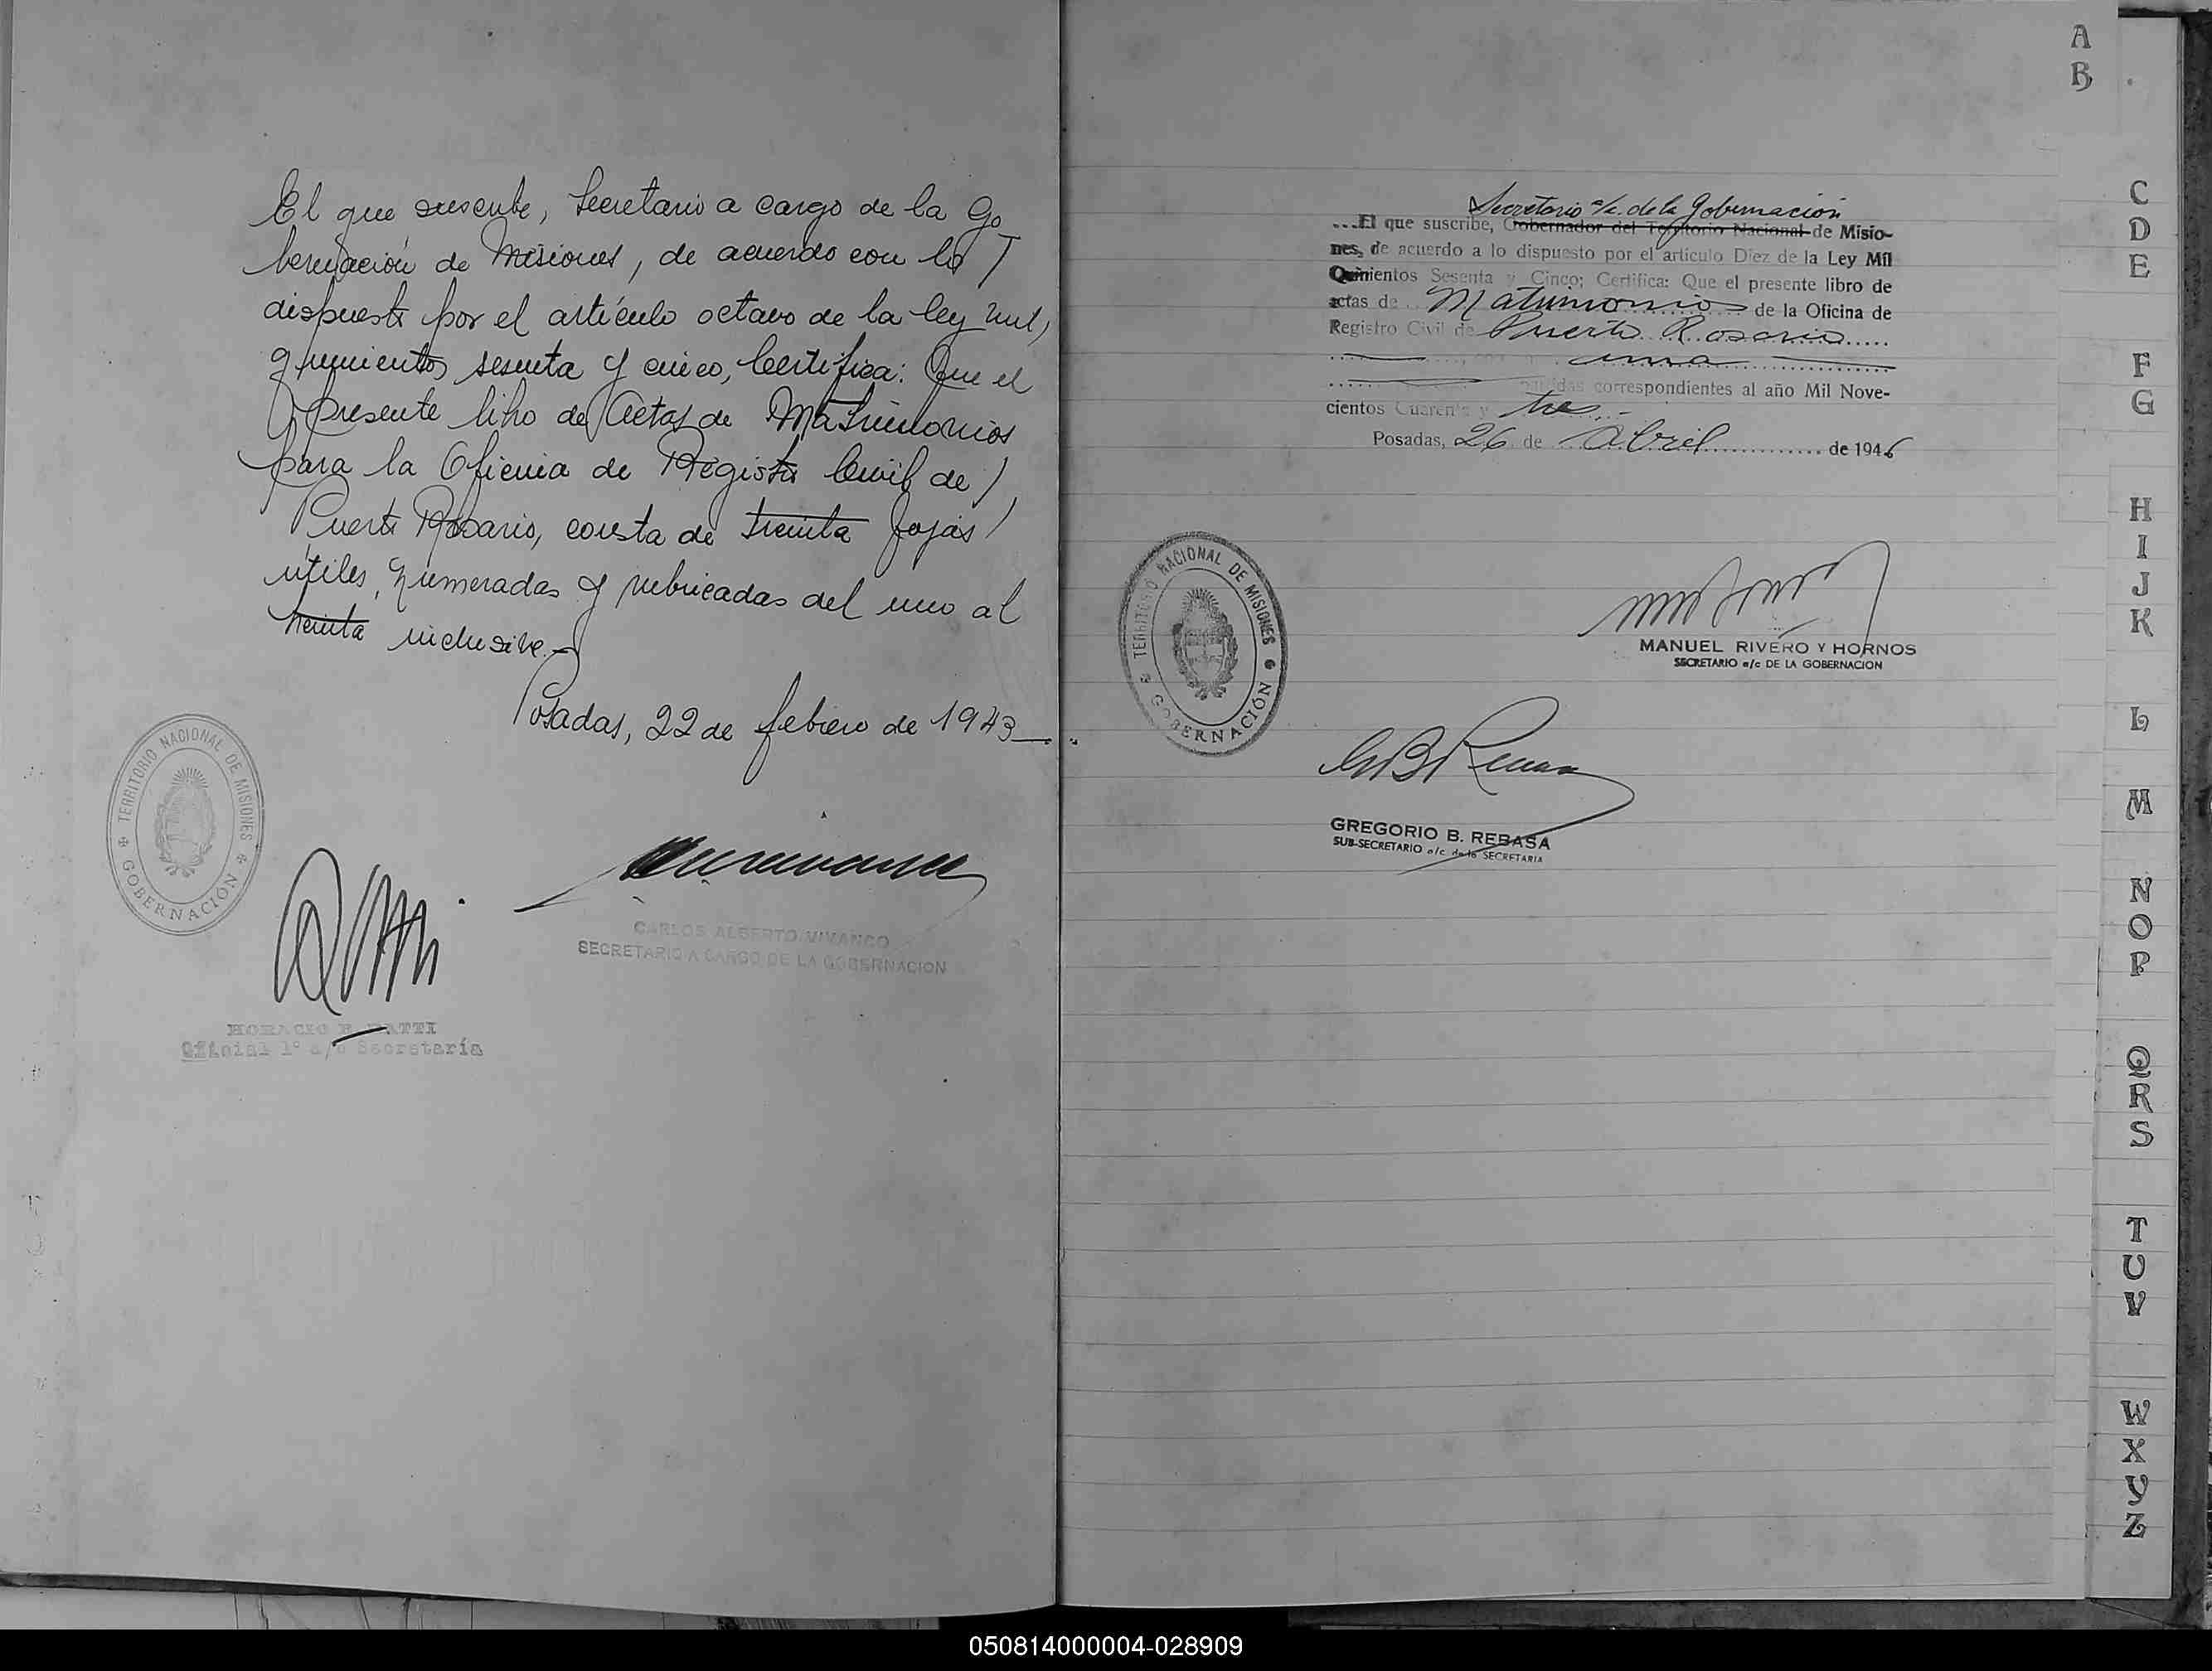 El que suscribe, Secretario a cargo de la Go
bernación de Misiones, de acuerdo con lo /
dispuesto por el artículo octavo de la ley mil,
quinientos sesenta y cinco, Certifica: Que el
presente libro de Actas de Matrimonios
para la Oficina de Registro Civil de /
Puerto Rosario, consta de treinta fojas /
útiles, numeradas y rubricadas del uno al
treinta inclusive.-
Posadas, 22 de febrero de 1943
TERRITORIO NACIONAL DE MISIONES
GOBERNACIÓN
CARLOS ALBERTO VIVANCO
SECRETARIO A CARGO DE LA GOBERNACION
HORACIO E. RATTI
Oficial 1° a/c Secretaría
Secretario a/c. de la Gobernación
...El que suscribe, Gobernador del Territorio Nacional de Misio-
nes, de acuerdo a lo dispuesto por el artículo Diez de la Ley Mil
Quinientos Sesenta y Cinco; Certifica: Que el presente libro de
actas de Matrimonios de la Oficina de
Registro Civil de Puerto Rosario
una
partidas correspondientes al año Mil Nove-
cientos Cuarenta y tres.-
Posadas, 26 de Abril de 1946
TERRITORIO NACIONAL DE MISIONES
GOBERNACIÓN
MANUEL RIVERO Y HORNOS
SECRETARIO a/c DE LA GOBERNACION
GREGORIO B. REBASA
SUB-SECRETARIO a/c de la SECRETARIA
A
B
C
D
E
F
G
H
I
J
K
L
M
N
O
P
Q
R
S
T
U
V
W
X
Y
Z
050814000004-028909